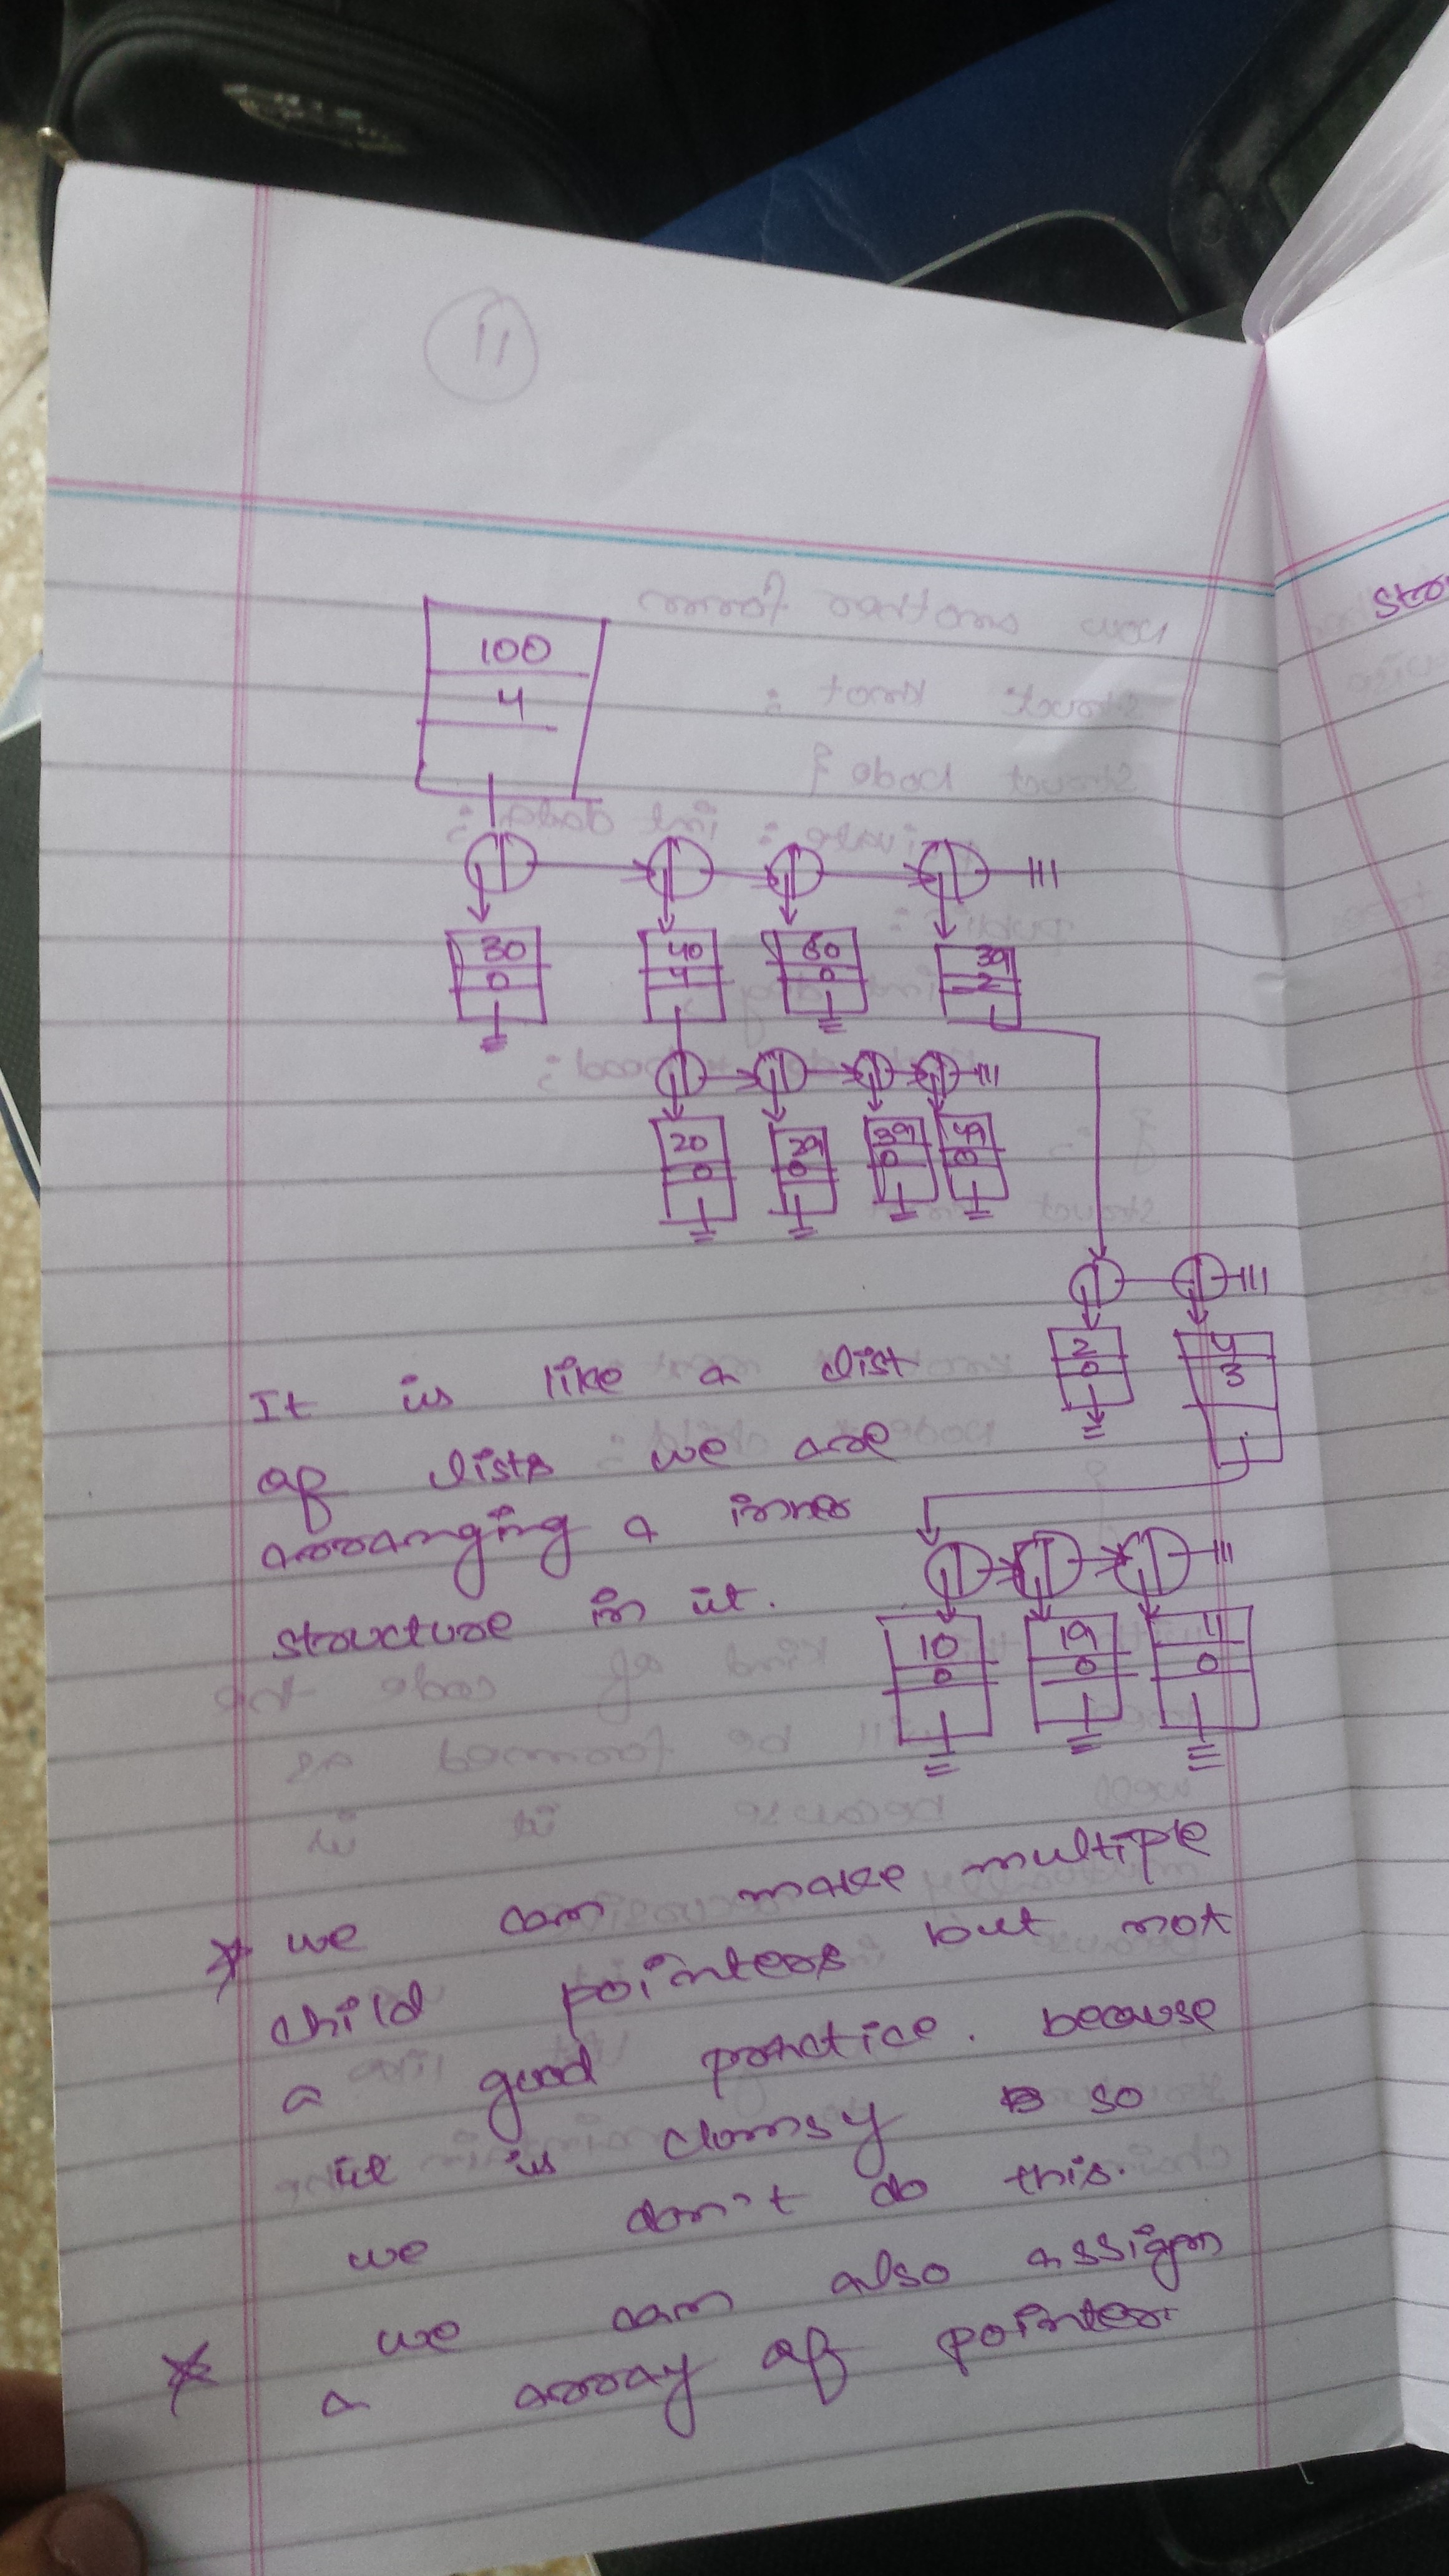 11
100
4
30 40 60 39
0 4 0 2
20 29 39 49
0 0 0 0
2 4
0 3
It is like a list
of lists we are
arranging a inner
structure in it.
10 19 11
0 0 0
* we can make multiple
child pointers but not
a good practice. because
it is clomsy so
we don't do this.
* we can also assign
a array of pointer